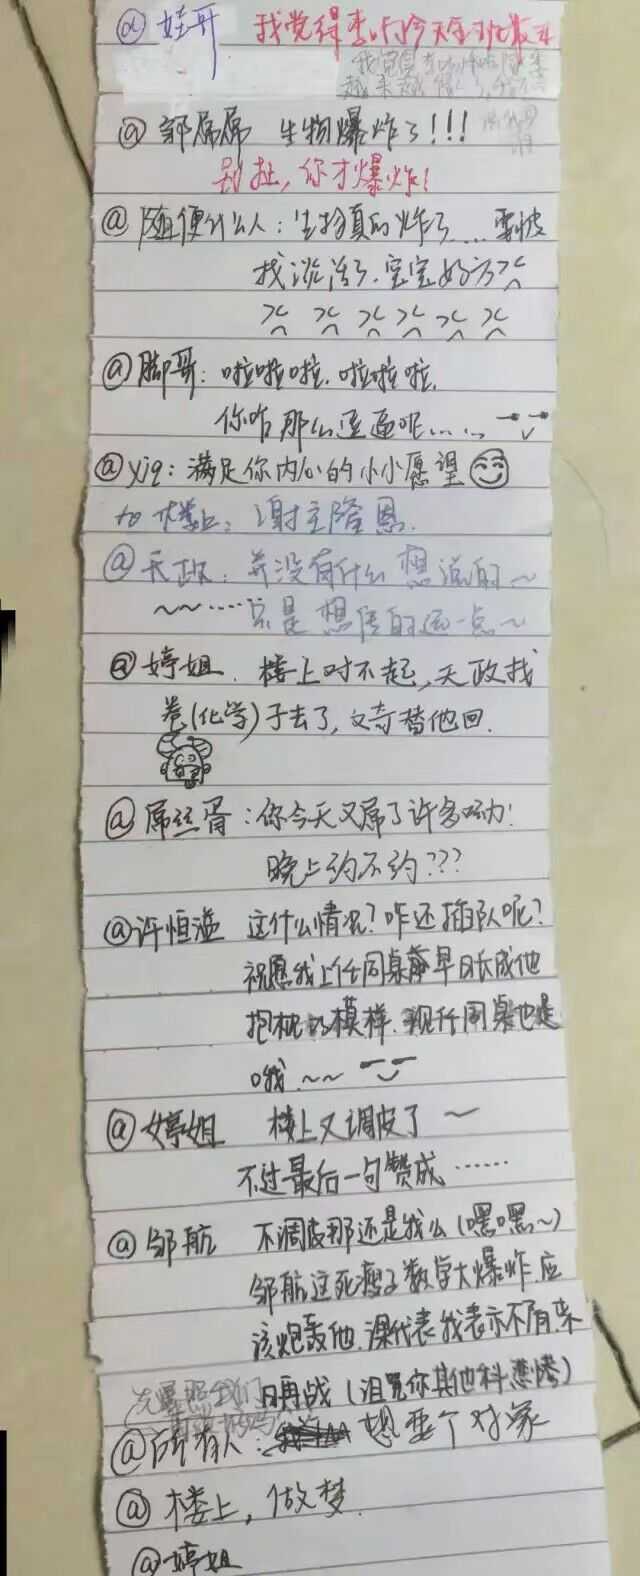 @ 娃哥 我觉得 今天
@ 郭屌屌 生物爆炸了!!!
别扯,你才爆炸!
@ 随便什么人:生物真的炸了.... 要被
找谈话了.宝宝好方
@ 脚哥:啦啦啦.啦啦啦.
你咋那么逗逼呢......
@ yjq:满足你内心的小小愿望
to 楼上:谢主隆恩.
@ 天政:并没有什么想说的~
~~····只是想传的远一点~
@ 婷姐.楼上对不起,天政找
卷(化学)子去了,文奇替他回.
@ 屌丝胥:你今天又屌了许多呦!
晚上约不约???
@许恒溢 这什么情况?咋还插队呢?
祝愿我上任同桌 早日长成他
抱枕的模样.现任同桌也是
哦.~~
@ 婷姐 楼上又调皮了 ~
不过最后一句赞成······
@ 邹航 不调皮那还是我么(嘿嘿~)
邹航这死 数学大爆炸应
该炮轰他.课代表我表示不服.来
日再战(诅咒你其他科 )
先爆照我们
@所有人: 想要个对象
@ 楼上,做梦.
@婷姐